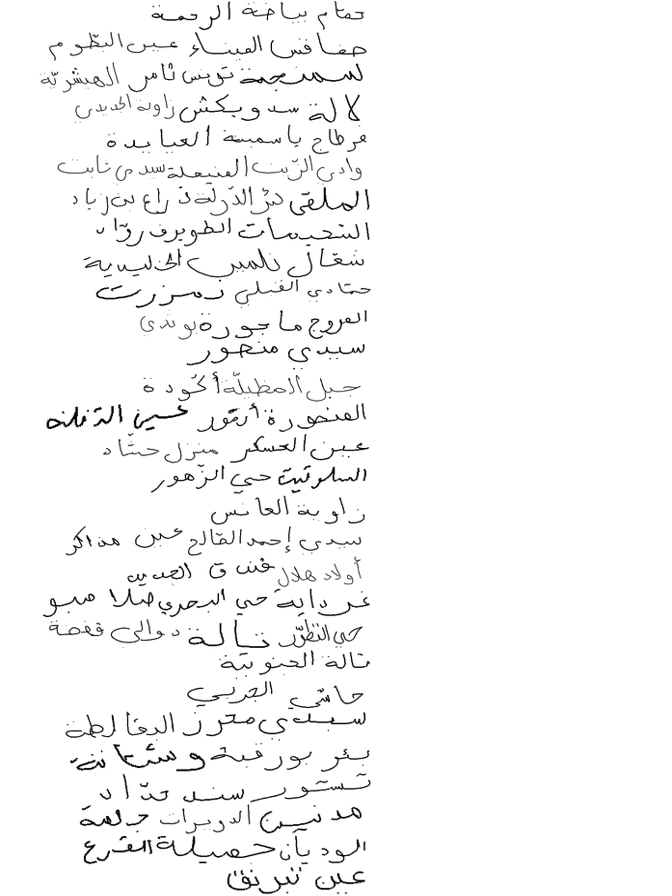 حمام بياضة الرحمة
صفاقس الميناء عين البطوم
لسمنجمة تونس ثامر الهيشرية
لالة سدويكش زاوية الجديدي
قرطاج ياسمينة العبايدة
وادي الزيت الفنيعلة سيدي ثابت
الملقى نبّر الدولة ذراع بن زياد
النحيسات الطويرف روّاد
شغال نلمين الخليدية
حمّادي القبلي زمزرت
المروج ماجورة بوندي
سيدي منصور
جبل المظيلّة أكودة
المنصورة أريور عين الدفلة
عين العسكر منزل حشّاد
السلوقية حي الزهور
زاوية العانس
سيدي إحمد الصّالح عين مذاكر
أولاد هلال فندق الجديد
غرداية حي البحري صلامبو
حي التطوّر تالة دوالي قفصة
تالة الجنوبيّة
حاشي الجربي
سيدي محرز البغالطة
بئر بورقبة وشتاتة
تستور سند حدّاد
مدنين الدويرات جلمة
الوديان حصيلة القرع
عين تبرنق